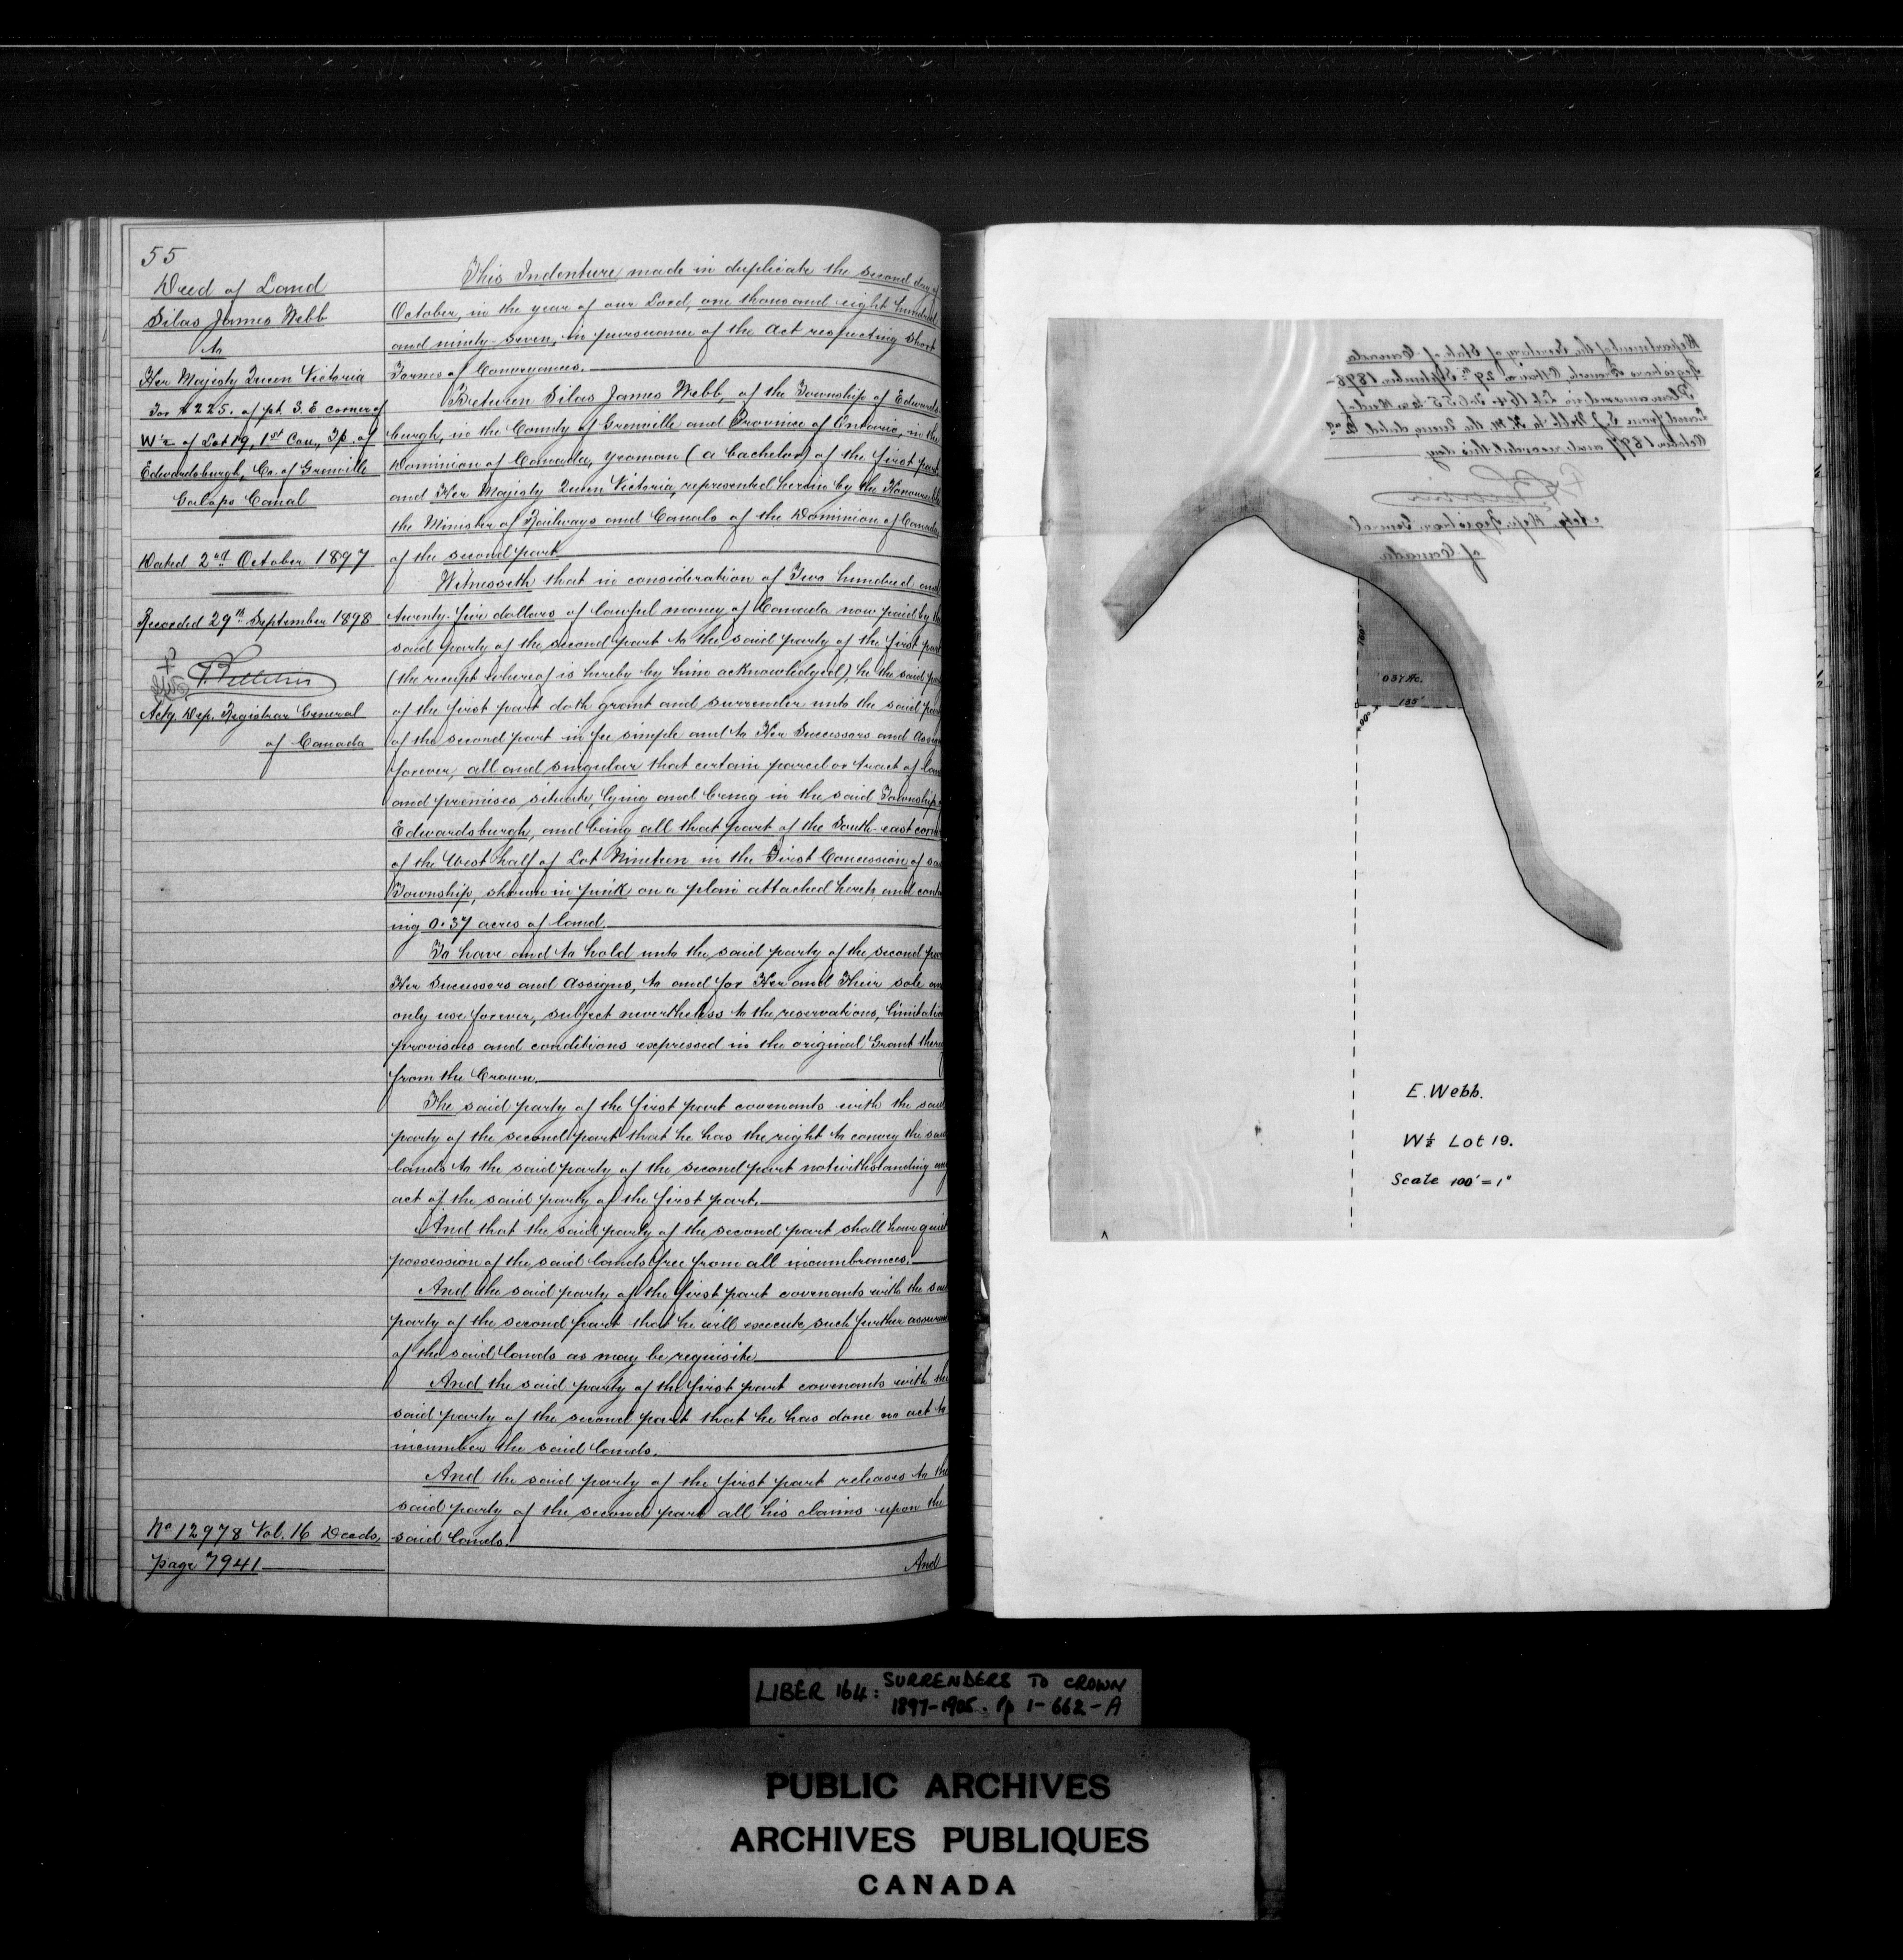 55
Deed of Land
Silas James Webb
to
Her Majesty Queen Victoria
For $225. of pt S.E corner of
W½ of Lot 19, 1st Con., Tp. of
Edwardsburgh, Co. of Grenville
Galops Canal
Dated 2nd October 1897
Recorded 29th September 1898
Actg. Dep. Registrar General
of Canada
No 12978 Vol. 16 Deeds,
page 7941
This Indenture made in duplicate the second day of
October, in the year of our Lord, one thousand eight hundred
and ninety-seven, in pursuance of the Act respecting Short
Forms of Conveyances.
Between Silas James Webb, of the Township of Edwards
burgh, in the County of Grenville and Province of Ontario, in the
Dominion of Canada, yeoman (a bachelor) of the first part
and Her Majesty Queen Victoria, represented herein by the Honourable
the Minister of Railways and Canals of the Dominion of Canada,
of the second part
Witnesseth that in consideration of Two hundred and
twenty-five dollars of lawful money of Canada now paid by the
said party of the second part to the said party of the first part
(the receipt whereof is hereby by him acknowledged), he the said party
of the first part doth grant and surrender unto the said party
of the second part in fee simple and to Her Successors and Assigns
forever, all and singular that certain parcel or tract of land
and premises situate, lying and being in the said Township of
Edwardsburgh, and being all that part of the South-east corner
of the West half of Lot Nineteen in the First Concession of said
Township, shown in pink on a plan attached hereto, and contain
ing 0.37 acres of land.
To have and to hold unto the said party of the second part
Her Successors and Assigns, to and for Her and Their sole and
only use forever, subject nevertheless to the reservations, limitations
provisoes and conditions expressed in the original Grant thereof
from the Crown.
The said party of the first part covenants with the said
party of the second part that he has the right to convey the said
lands to the said party of the second part notwithstanding any
act of the said party of the first part.
And that the said party of the second part shall have quiet
possession of the said lands free from all incumbrances.
And the said party of the first part covenants with the said
party of the second part that he will execute such further assurances
of the said lands as may be requisite
And the said party of the first part covenants with the
said party of the second part that he has done no act to
incumber the said lands.
And the said party of the first part releases to the
said party of the second part all his claims upon the
said lands.
And
Department of the Secretary of State of Canada
Registrar's Branch, Ottawa, 29th September 1898
Plan annexed in Lib 164 Fol. 55 to a Deed of
Land from S. J. Webb to H. M. the Queen, dated 2nd
October 1897 and recorded this day
Actg. Dep. Registrar General
of Canada
160'
0.37 Ac.
135'
E. Webb.
W½ Lot 19.
Scale 100' = 1"
LIBER 164: SURRENDERS TO CROWN
1897-1905. Pp 1-662-A
PUBLIC ARCHIVES
ARCHIVES PUBLIQUES
CANADA